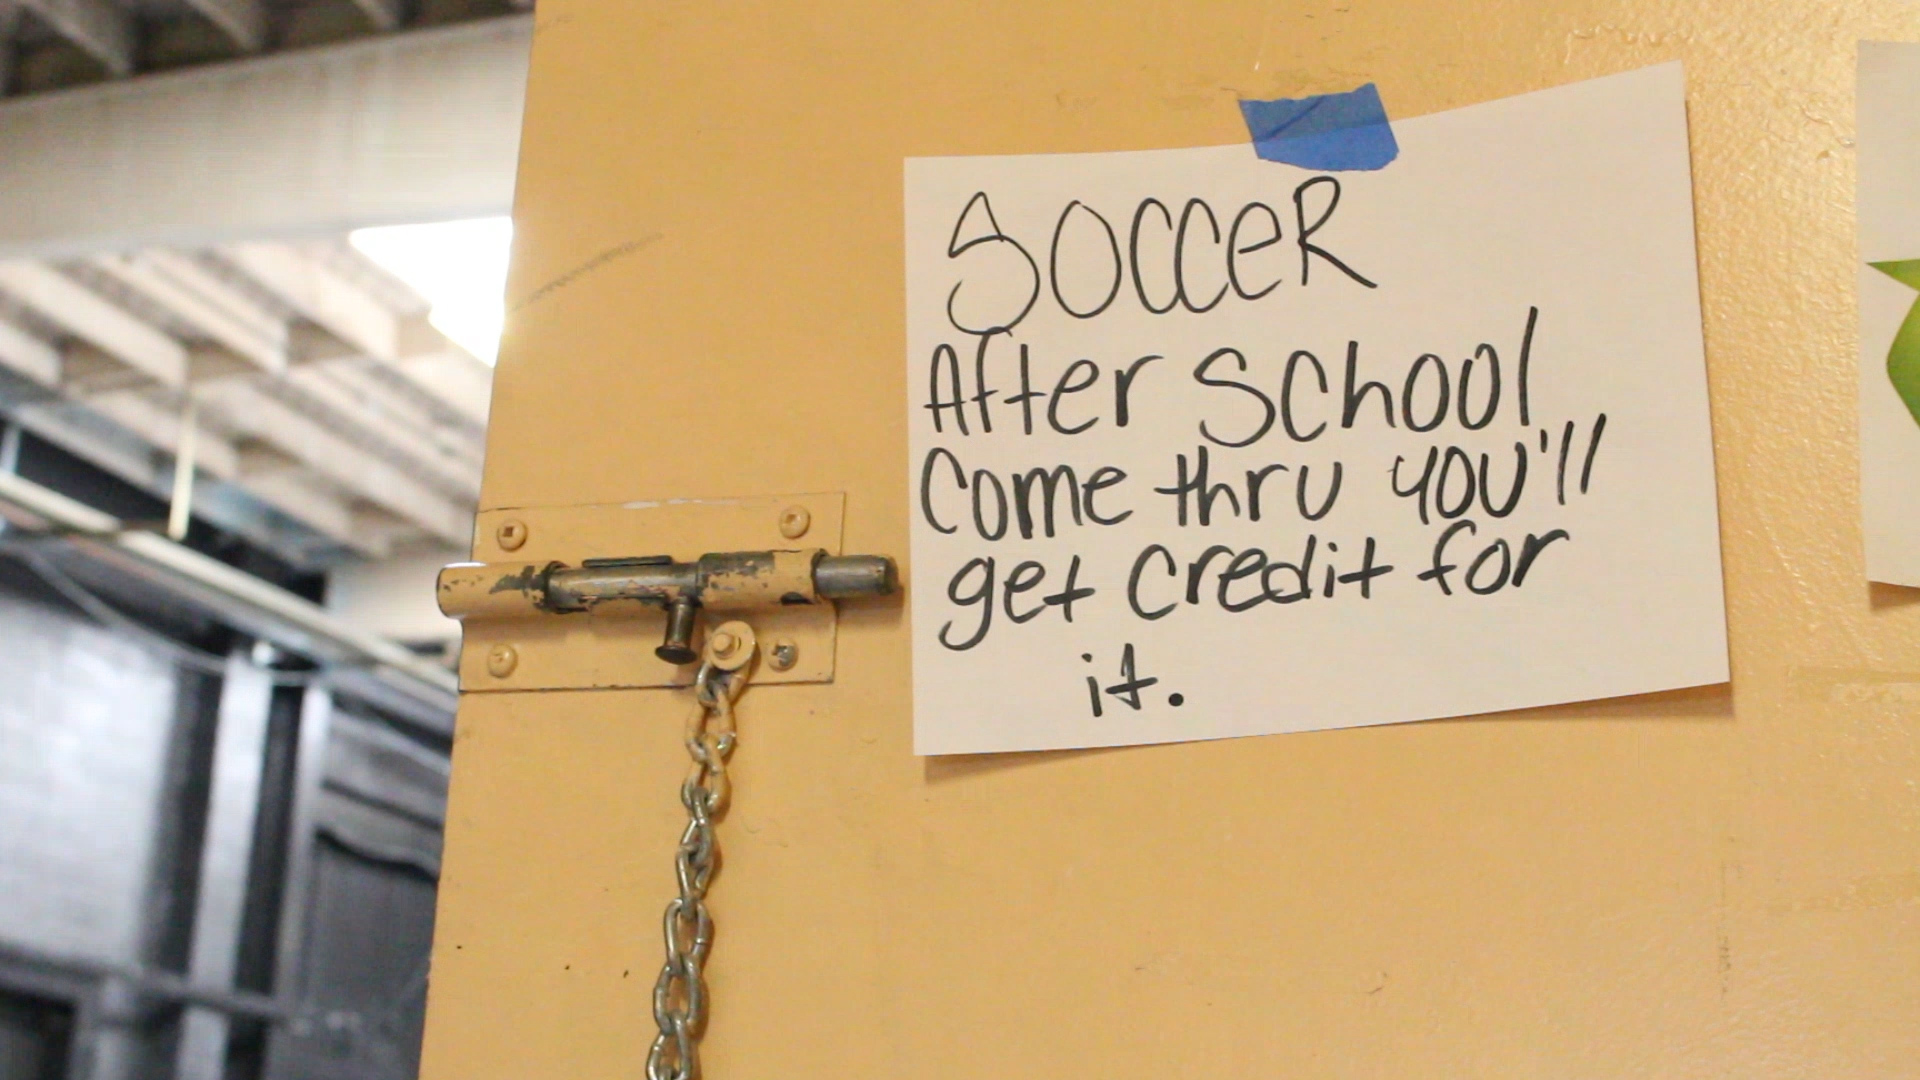 SOCCeR
After School
Come thru you'll
get credit for
it.